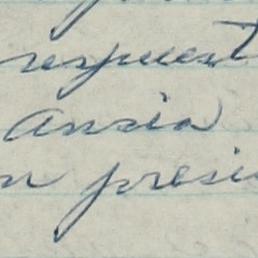 respuest
ansia
n presi